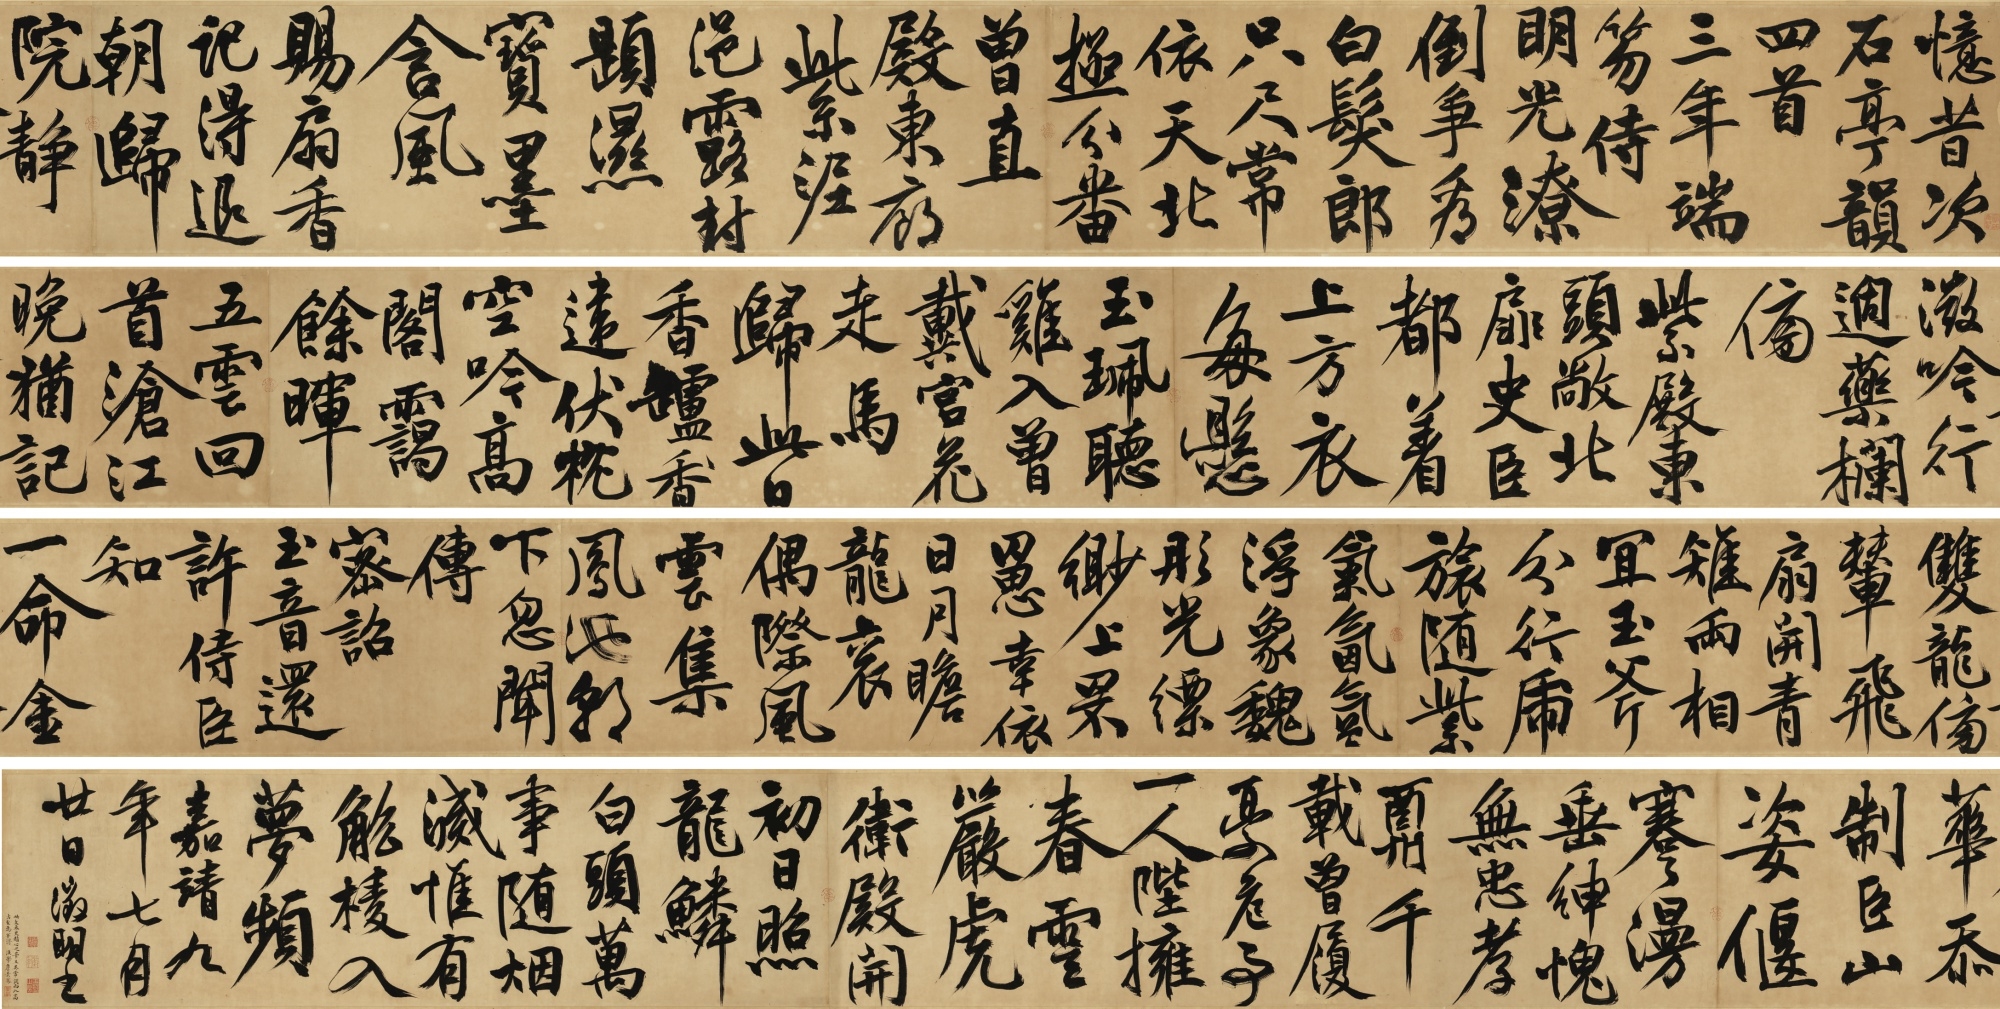 憶昔次
石亭韻
四首
三年端
笏侍
明光潦
倒爭看
白髮郎
只尺常
依天北
極分番
曾直
殿東廊
紫泥
浥露封
題濕
寶墨
含風
賜扇香
記得退
朝歸
院靜
微吟行
遶藥欄
傍
紫殿東
頭敞北
扉史臣
都着
上方衣
每懸
玉珮聽
雞入曾
戴宮花
走馬
歸此日
香罏香
違伏枕
空吟高
閣靄
餘暉
五雲回
首滄江
晚猶記
雙龍傍
輦飛
扇開青
雉兩相
宜玉斧
分行虎
旅隨紫
氣氤氳
浮象魏
彤光縹
緲上罘
罳幸依
日月瞻
龍袞
偶際風
雲集
鳳池郤
下忽聞
傳
密詔
玉音還
許侍臣
知
一命金
華忝
制臣山
姿偃
蹇漫
垂紳愧
無忠孝
酬千
載曾履
憂危事
一人陛擁
春雲
嚴虎
衛殿開
初日照
龍鱗
白頭萬
事隨烟
滅惟有
觚棱入
夢頻
嘉靖九
年七月
廿日徵明書